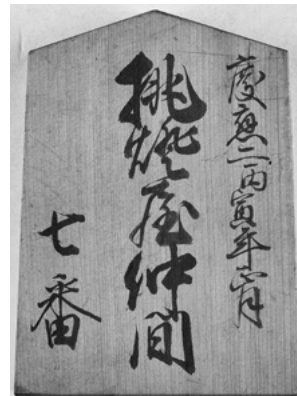 慶應二丙寅年正月
挑燈屋仲間
七番